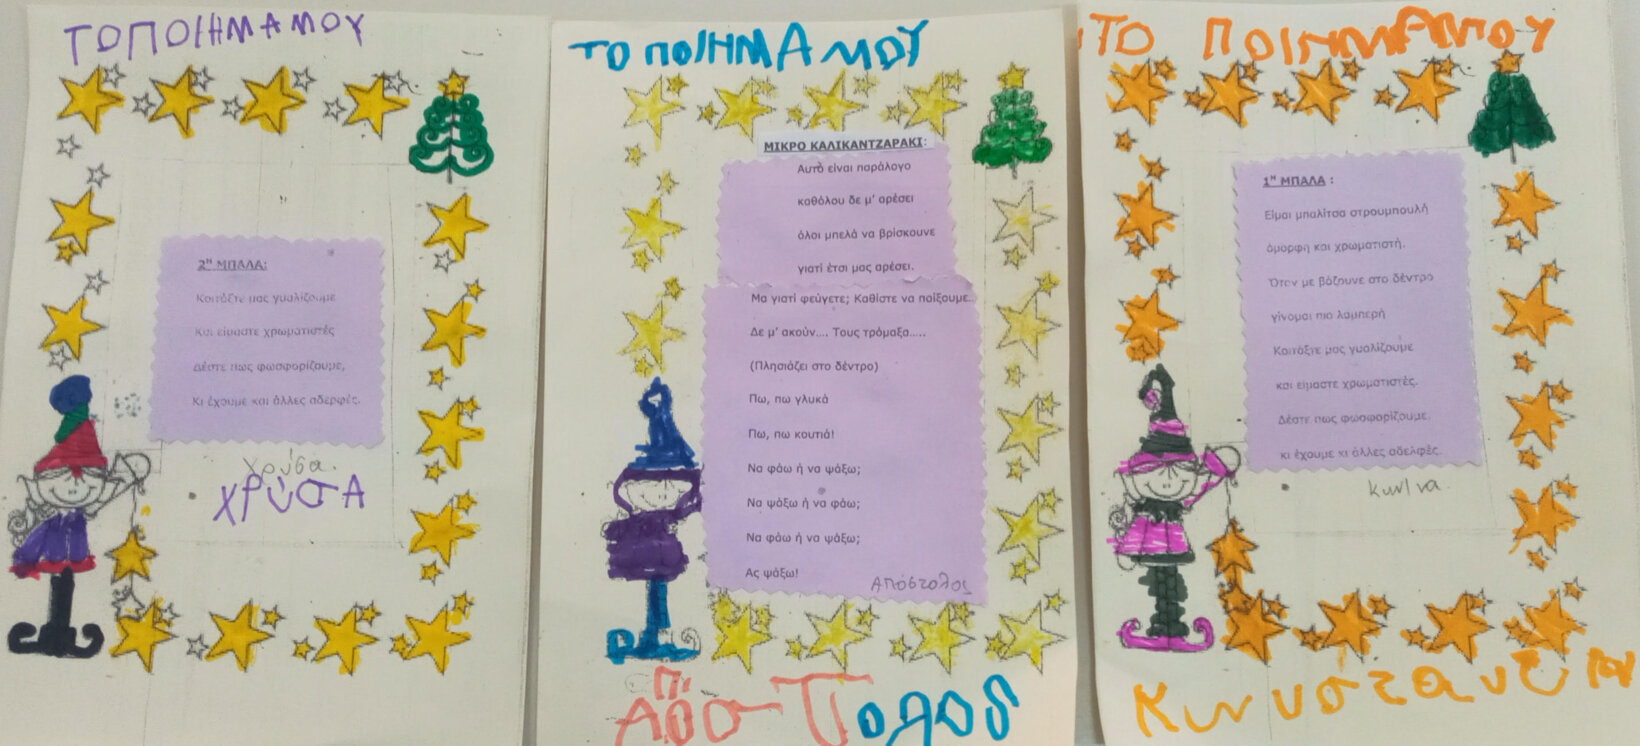 ΤΟ ΠΟΙΗΜΑ ΜΟΥ
2η ΜΠΑΛΑ:
Κοιτάξτε μας γυαλίζουμε
Και είμαστε χρωματιστές
Δέστε πως φωσφορίζουμε,
Κι έχουμε και άλλες αδερφές.
Χρύσα.
ΧΡύσΑ
ΤΟ ΠΟΙΗΜΑ ΜΟΥ
ΜΙΚΡΟ ΚΑΛΙΚΑΝΤΖΑΡΑΚΙ:
Αυτό είναι παράλογο
καθόλου δε μ' αρέσει
όλοι μπελά να βρίσκουνε
γιατί έτσι μας αρέσει.
Μα γιατί φεύγετε; Καθίστε να παίξουμε..
Δε μ' ακούν.... Τους τρόμαξα.....
(Πλησιάζει στο δέντρο)
Πω, πω γλυκά
Πω, πω κουτιά!
Να φάω ή να ψάξω;
Να ψάξω ή να φάω;
Να φάω ή να ψάξω;
Ας ψάξω!
Απόστολος
ΤΟ ΠΟΙΗΜΑ ΜΟΥ
1η ΜΠΑΛΑ :
Είμαι μπαλίτσα στρουμπουλή
όμορφη και χρωματιστή.
Όταν με βάζουνε στο δέντρο
γίνομαι πιο λαμπερή
Κοιτάξτε μας γυαλίζουμε
και είμαστε χρωματιστές.
Δέστε πως φωσφορίζουμε.
κι έχουμε κι άλλες αδελφές.
Κων/να.